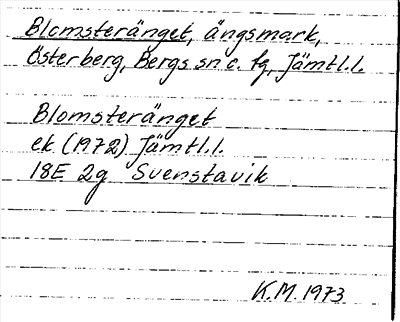 Blomsteränget, ängsmark,
Österberg, Bergs sn o. tg, Jämtl.l.
Blomsteränget
ek (1972) Jämtl.l.
18E 2g Svenstavik
K.M. 1973